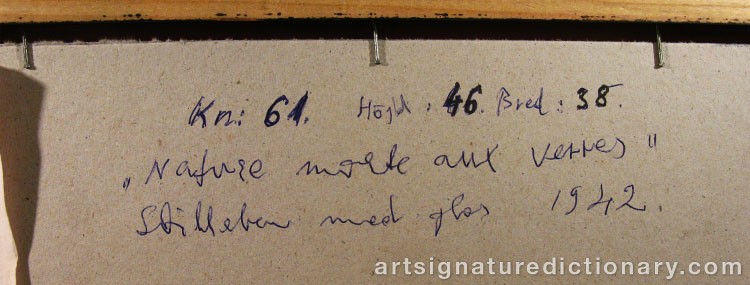 Kn: 61. Höjd: 46. Bred: 38.
„Nature morte aux verres"
Stilleben med glas 1942.
artsignaturedictionary.com